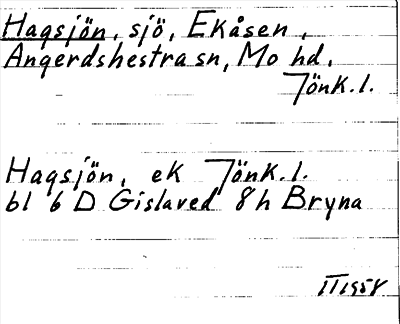 Hagsjön, sjö, Ekåsen,
Angerdshestra sn, Mo hd.
Jönk. l.
Hagsjön, ek Jönk. l.
bl 6 D Gislaved 8h Bryna
IT 1958